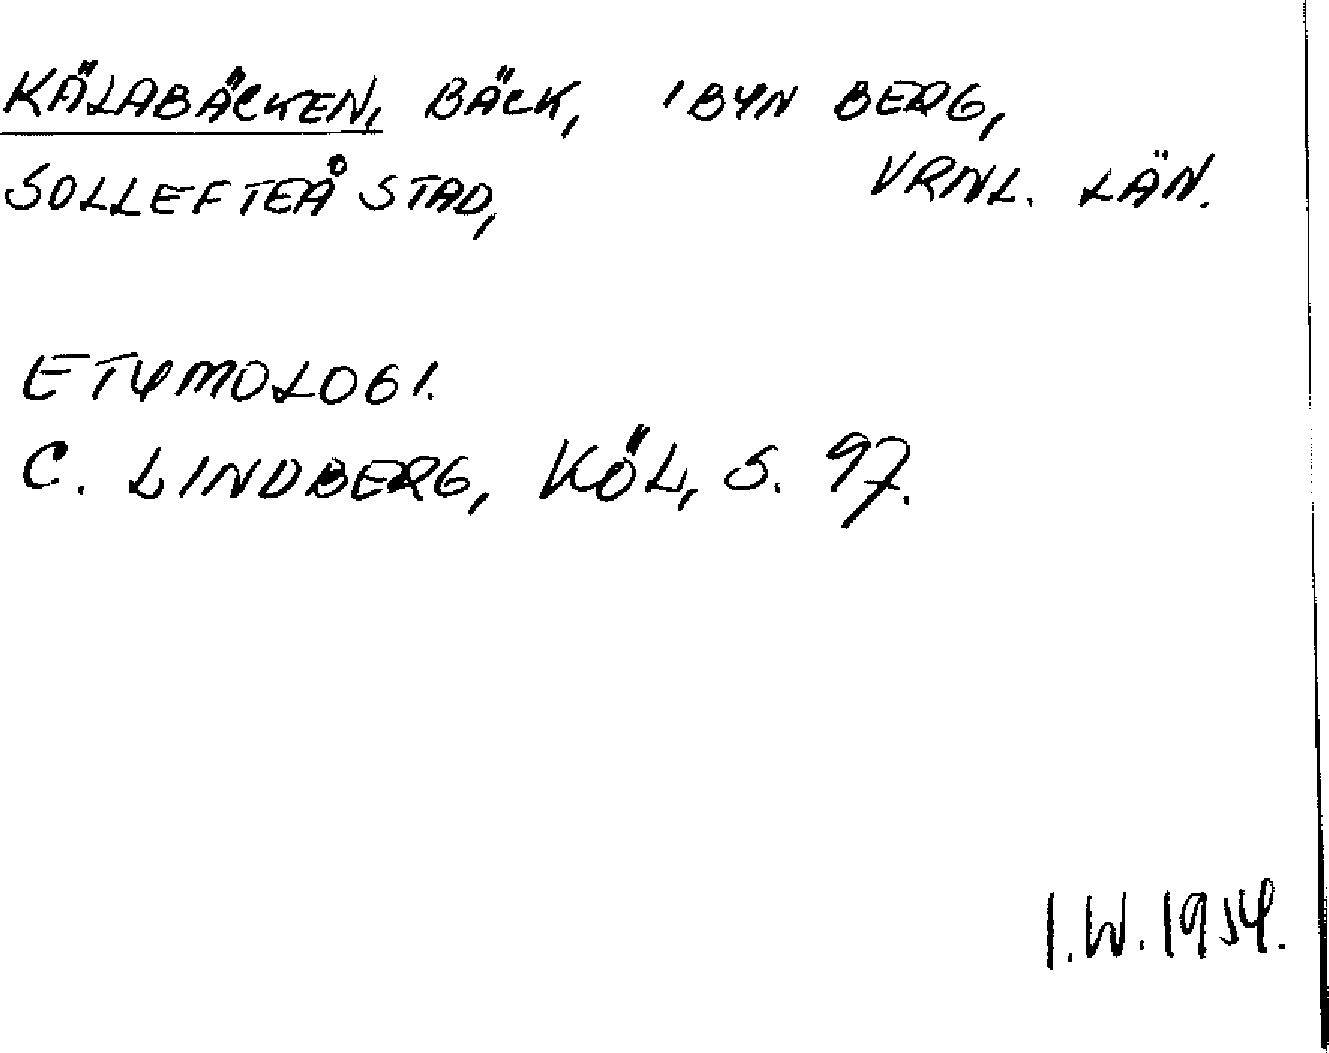 KÄLABÄCKEN, BÄCK, I BYN BERG,
SOLLEFTEÅ STAD, VRNL. LÄN.
ETYMOLOGI.
C. LINDBERG, KÖL, S. 97.
I.W. 1954.